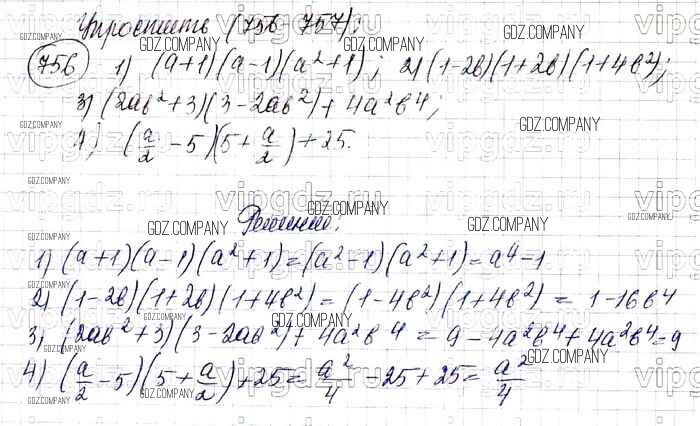 Упростить (756 757):
756 1) (a+1)(a-1)(a²+1); 2) (1-2b)(1+2b)(1+4b²);
3) (2ab²+3)(3-2ab²)+4a²b⁴;
4) (a/2 -5)(5+a/2)+25.
Решение:
1) (a+1)(a-1)(a²+1)=(a²-1)(a²+1)=a⁴-1
2) (1-2b)(1+2b)(1+4b²)=(1-4b²)(1+4b²)=1-16b⁴
3) (2ab²+3)(3-2ab²)+4a²b⁴=9-4a²b⁴+4a²b⁴=9
4) (a/2 -5)(5+a/2)+25=a²/4 -25+25=a²/4
GDZ.COMPANY
vipgdz.ru